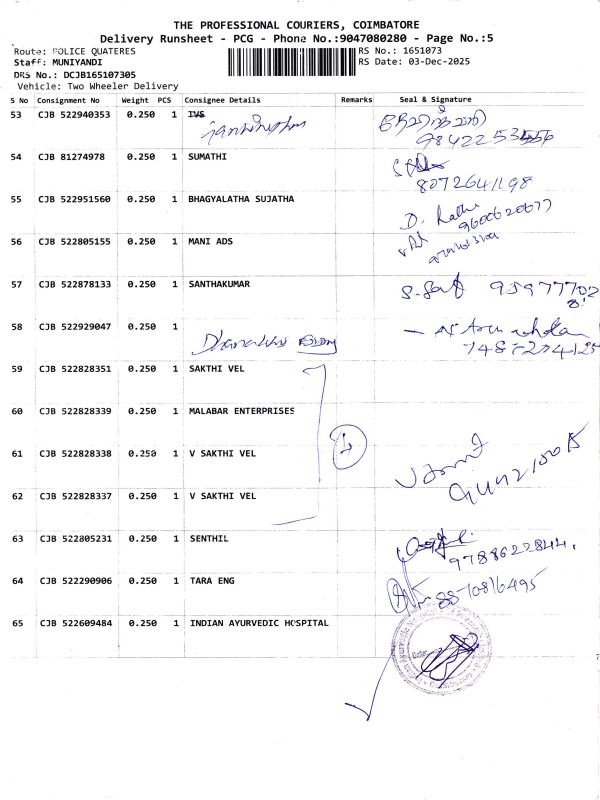 THE PROFESSIONAL COURIERS, COIMBATORE
Delivery Runsheet - PCG - Phone No.:9047080280 - Page No.:5
Route: POLICE QUATERES
RS No.: 1651073
Staff: MUNIYANDI
RS Date: 03-Dec-2025
DRS No.: DCJB165107305
Vehicle: Two Wheeler Delivery
S No Consignment No Weight PCS Consignee Details Remarks Seal & Signature
53 CJB 522940353 0.250 1 IVS
54 CJB 81274978 0.250 1 SUMATHI
8072641198
55 CJB 522951560 0.250 1 BHAGYALATHA SUJATHA
D. Latha
9600620677
56 CJB 522805155 0.250 1 MANI ADS
57 CJB 522878133 0.250 1 SANTHAKUMAR
58 CJB 522929047 0.250 1
59 CJB 522828351 0.250 1 SAKTHI VEL
60 CJB 522828339 0.250 1 MALABAR ENTERPRISES
61 CJB 522828338 0.250 1 V SAKTHI VEL
4
62 CJB 522828337 0.250 1 V SAKTHI VEL
63 CJB 522805231 0.250 1 SENTHIL
9788622844.
64 CJB 522290906 0.250 1 TARA ENG
8870816495
65 CJB 522609484 0.250 1 INDIAN AYURVEDIC HOSPITAL